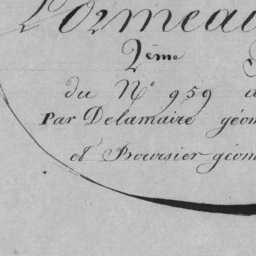 Lormeau
2ème
du N° 959
Par Delamaire géom
et Boursier géom